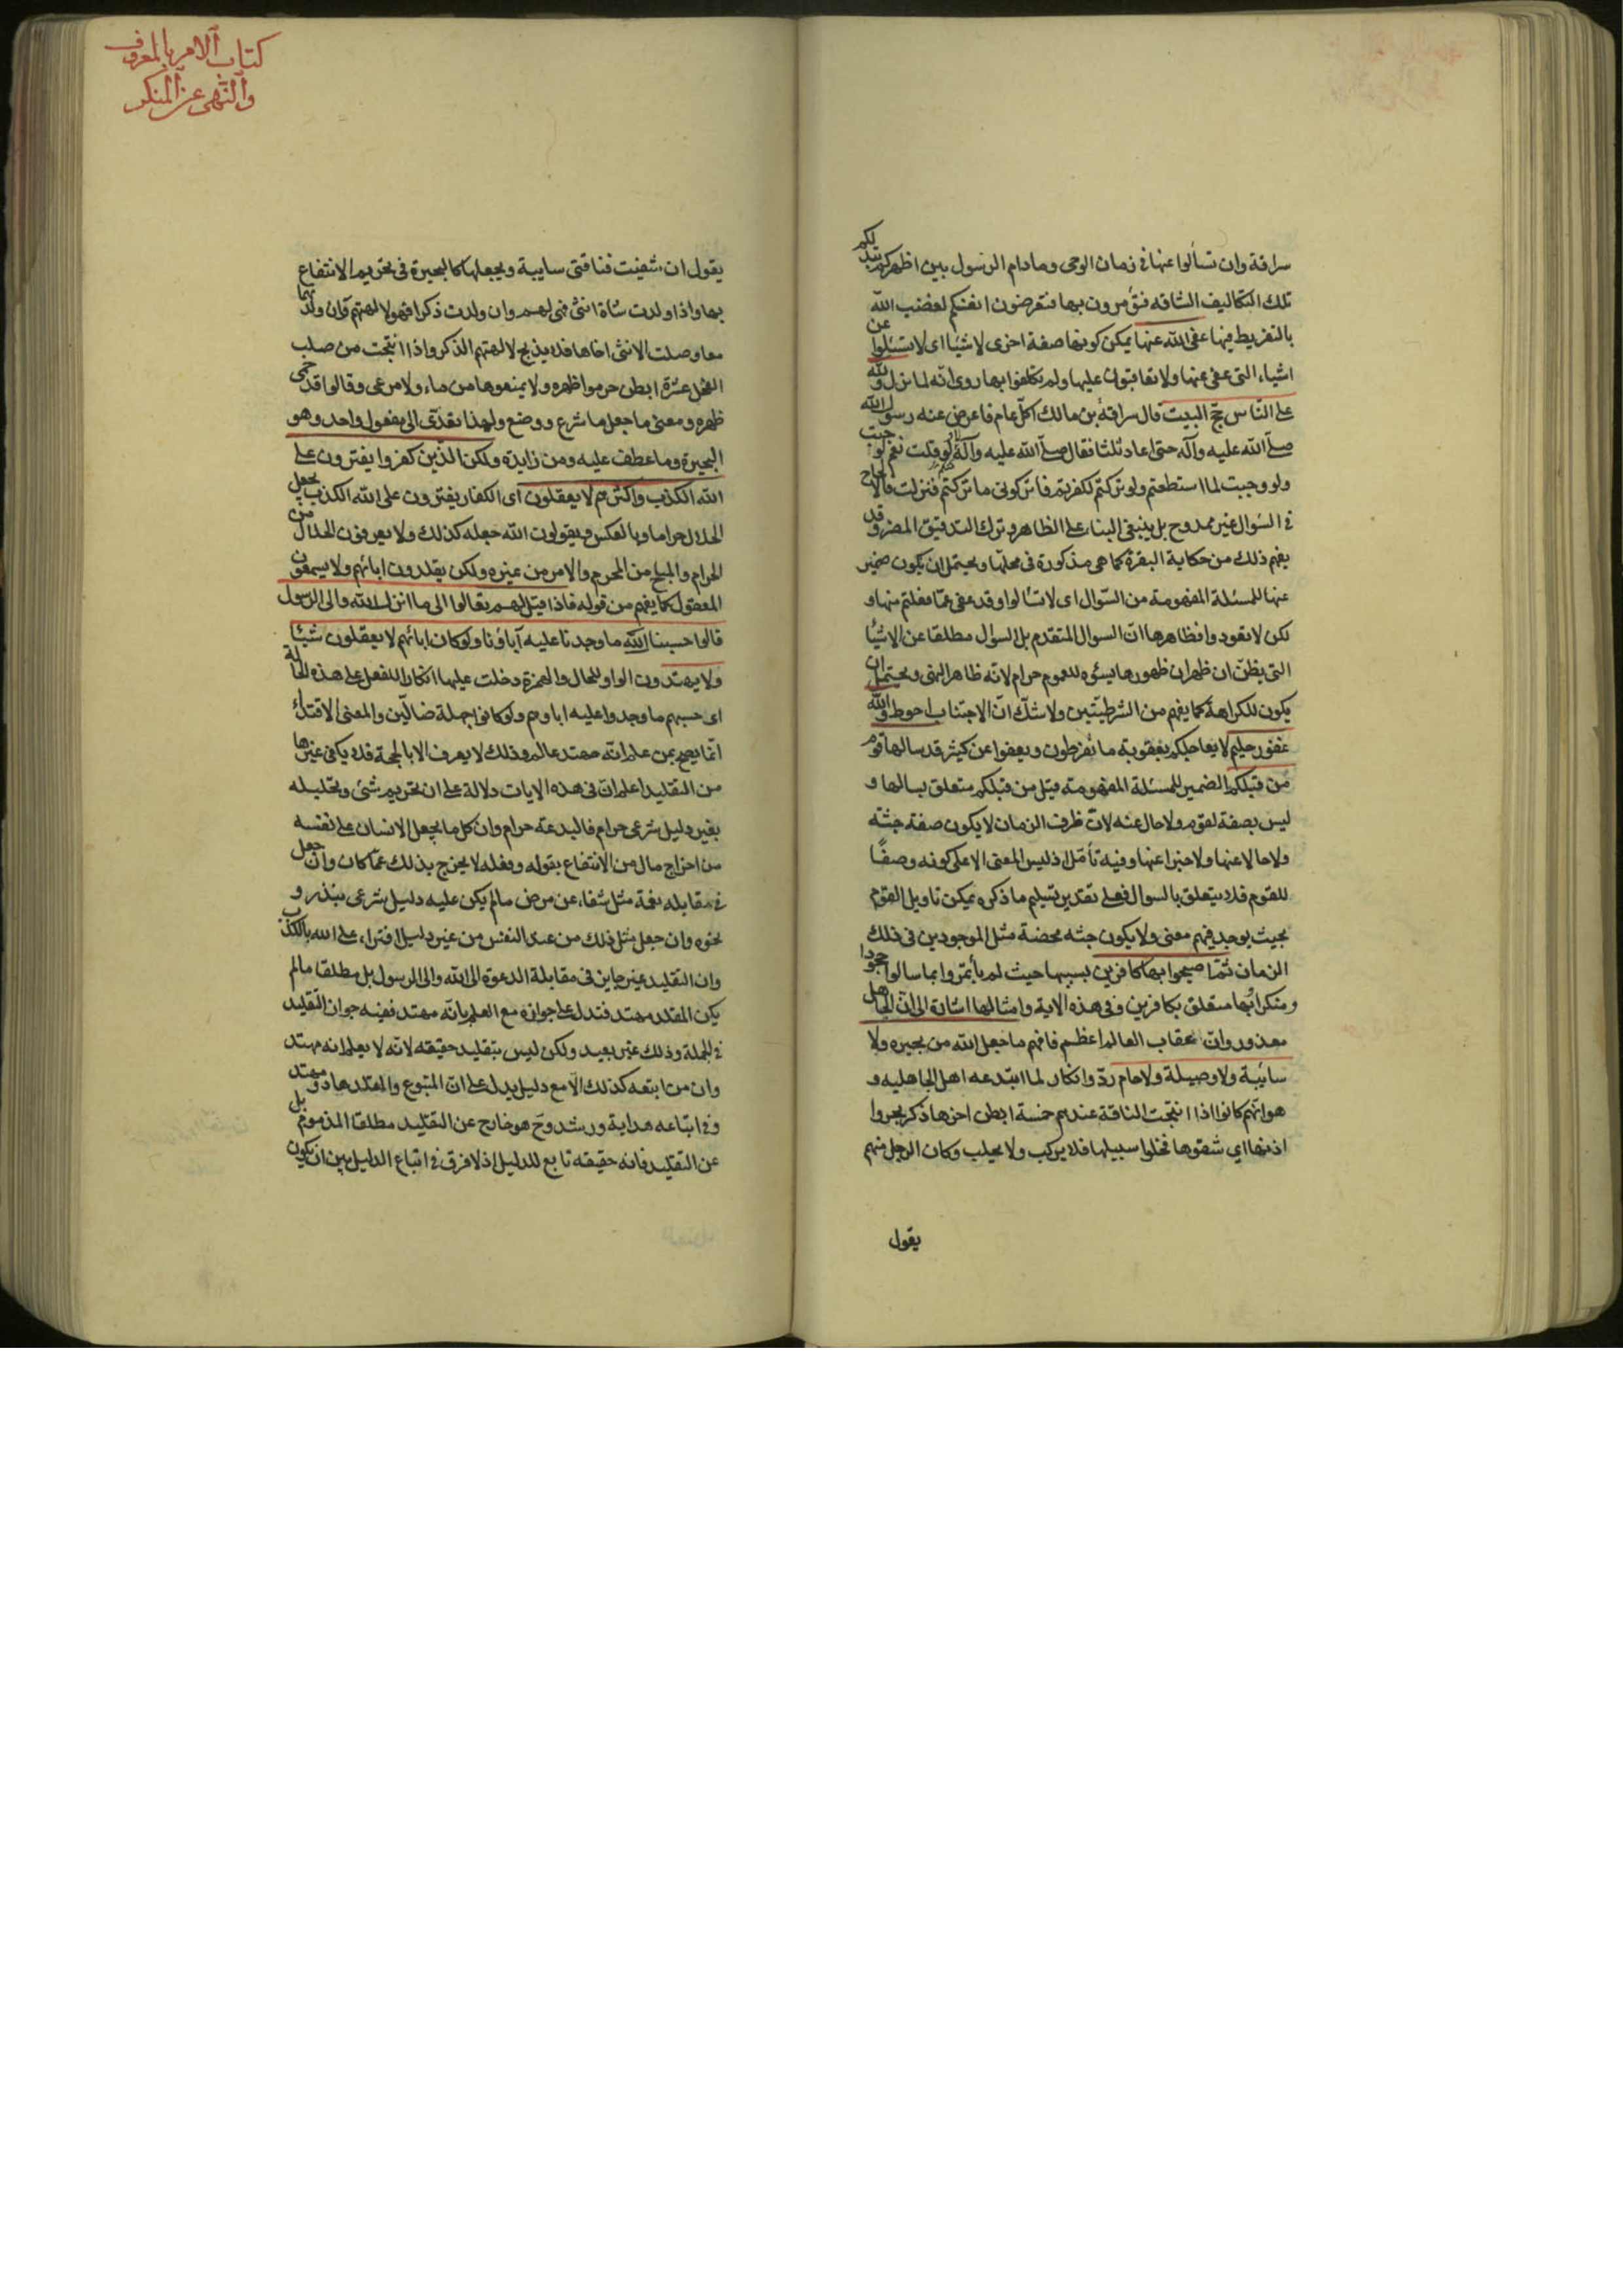 سراقة وان تسألوا عنها في زمان الوحى ومادام الرسول بين اظهركم تبد لكم
تلك التكاليف الشاقه فتؤمرون بها فتعرضون انفسكم لغضب الله
بالتفريط فيها عفى الله عنها يمكن كونها صفة اخرى لاشياء اى لا تسئلوا عن
اشياء التى عفى عنها ولا تعاقبون عليها ولم يكلفوا بها روى انه لما نزل ولله
على الناس حج البيت قال سراقة بن مالك اكل عام فاعرض عنه رسول الله
صلى الله عليه وآله حتى اعاد ثلثا فقال صلى الله عليه وآله لا ولو قلت نعم لوجبت
ولو وجبت لما استطعتم ولو تركتم لكفرتم فاتركونى ما تركتكم فنزلت فالالحاح
في السؤال غير ممدوح بل ينبغى البناء على الظاهر وترك التدقيق المضر وقد
يفهم ذلك من حكاية البقرة كما هى مذكورة فى محلها ويحتمل ان يكون ضمير
عنها للمسئلة المفهومة من السؤال اى لا تسألوا وقد عفى عما فعلتم منها و
لكن لا تعودوا فظاهرها ان السوال المتقدم بل السؤال مطلقا عن الاشياء
التى يظن ان ظهران ظهورها يسؤه للعموم حرام لانه ظاهر النهى ويحتمل ان
يكون للكراهة كما يفهم من الشرطيتين ولا شك ان الاجتناب احوط والله
غفور حليم لا يعاجلكم بعقوبة ما تفرطون ويعفوا عن كثير قد سالها قوم
من قبلكم الضمير للمسئلة المفهومة قيل من قبلكم متعلق بسالها و
ليس بصفة لقوم ولا حال عنه لان ظرف الزمان لا يكون صفة جثة
ولا حالا عنها ولا خبرا عنها وفيه تأمل اذ ليس المعنى الا على كونه وصفًا
للقوم فلا يتعلق بالسوال فعلى تقدير تسليم ما ذكره يمكن تاويل القوم
بحيث يوجد فيهم معنى ولا يكون جثه محضة مثل الموجودين فى ذلك
الزمان ثم اصبحوا بها كافرين بسببها حيث لم يأتمروا بما سالوا جحودا
ومنكرا بها متعلق بكافرين وفى هذه الاية وامثالها اشارة الى ان الجاهل
معذور وان عقاب العالم اعظم فافهم ما جعل الله من بحيره ولا
سائبة ولا وصيلة ولا حام رد وانكار لما ابتدعه اهل الجاهليه و
هو انهم كانوا اذا انتجت الناقة عندهم خمسة ابطن اخرها ذكر بحروا
اذنها اي شقوها فخلوا سبيلها فلا يركب ولا يحلب وكان الرجل منهم
يقول
كتاب الامر بالمعروف
والنهى عن المنكر
يقول ان شفيت فناقتى سايبة ويجعلها كالبحيرة فى تحريم الانتفاع
بها واذا ولدت شاة انثى فهى لهم وان ولدت ذكرا فهو لالهتهم وان ولدتهما
معا وصلت الانثى اخاها فلا يذبح لالهتهم الذكر واذا انتجت من صلب
الفحل عشرة ابطن حرموا ظهره ولا يمنعوها من ماء ولا مرعى وقالوا قد حمى
ظهره ومعنى ما جعل ما شرع ووضع ولهذا تعدى الى مفعول واحد وهو
البحيرة وما عطف عليه ومن زايدة ولكن الذين كفروا يفترون على
الله الكذب واكثرهم لا يعقلون اى الكفار يفترون على الله الكذب بجعل
الحلال حراما وبالعكس ويقولون الله جعله كذلك ولا يعرفون الحلال من
الحرام والمبيح من المحرم والامر من غيره ولكن يقلدون ابائهم ولا يسمعون
المعقول كما يفهم من قوله فاذا قيل لهم تعالوا الى ما انزل الله والى الرسول
قالوا حسبنا الله ما وجدنا عليه آباؤنا ولو كان ابائهم لا يعقلون شيئا
ولا يهتدون الواو للحال والهمزة دخلت عليها انكارا للفعل على هذه الحالة
اى حسبهم ما وجدوا عليه اباوهم ولو كانوا جهلة ضالين والمعنى الاقتداء
انما يصح بمن علم انه مهتد عالم وذلك لا يعرف الا بالحجة فلا يكفى غيرها
من التقليد اعلم ان فى هذه الايات دلالة على ان تحريم شئ وتحليله
بغير دليل شرعى حرام فالبدعة حرام وان كل ما يجعل الانسان على نفسه
من اخراج مال من الانتفاع بقوله وفعله لا يخرج بذلك عما كان وان جعل
فى مقابله نعمة مثل شفاء عن مرض مالم يكن عليه دليل شرعى بنذر و
نحوه وان جعل مثل ذلك من عند النفس من غير دليل افتراء على الله بالكذب
وان التقليد غير جايز فى مقابلة الدعوة الى الله والى الرسول بل مطلقا مالم
يكن المقلد مهتد فتدل على جوازه مع العلم بانه مهتد ففيه جواز التقليد
فى الجملة وذلك غير بعيد ولكن ليس بتقليد حقيقه لانه لا يعلم انه مهتد
وان من ابتعه كذلك الا مع دليل يدل على ان المتبوع والمقلد هاد ومهتد
وفى اتباعه هداية ورشد وح هو خارج عن التقليد مطلقا المذموم بل
عن التقليد فانه حقيقه تابع للدليل اذ لا فرق فى اتباع الدليل بين ان يكون